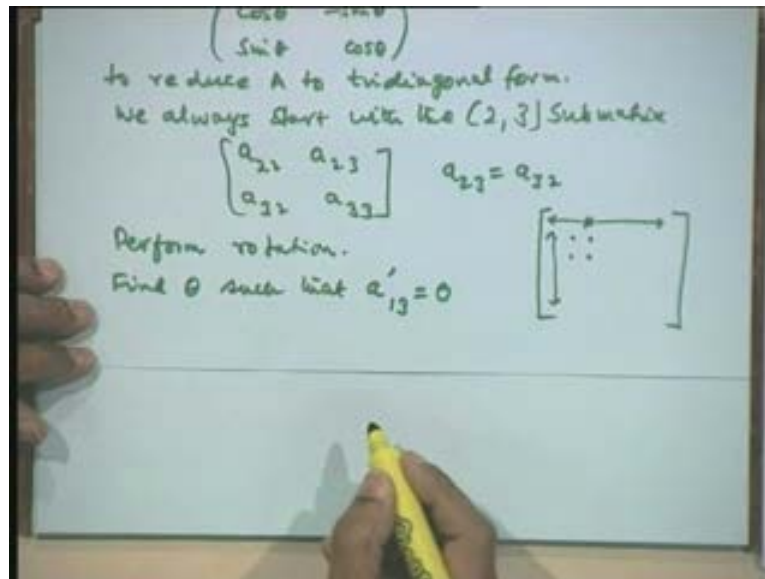 ( cosθ -sinθ
sinθ cosθ )
to reduce A to tridiagonal form.
We always start with the (2, 3) submatrix
[ a22 a23 ] a23 = a32
[ a32 a33 ]
Perform rotation.
Find θ such that a'13 = 0